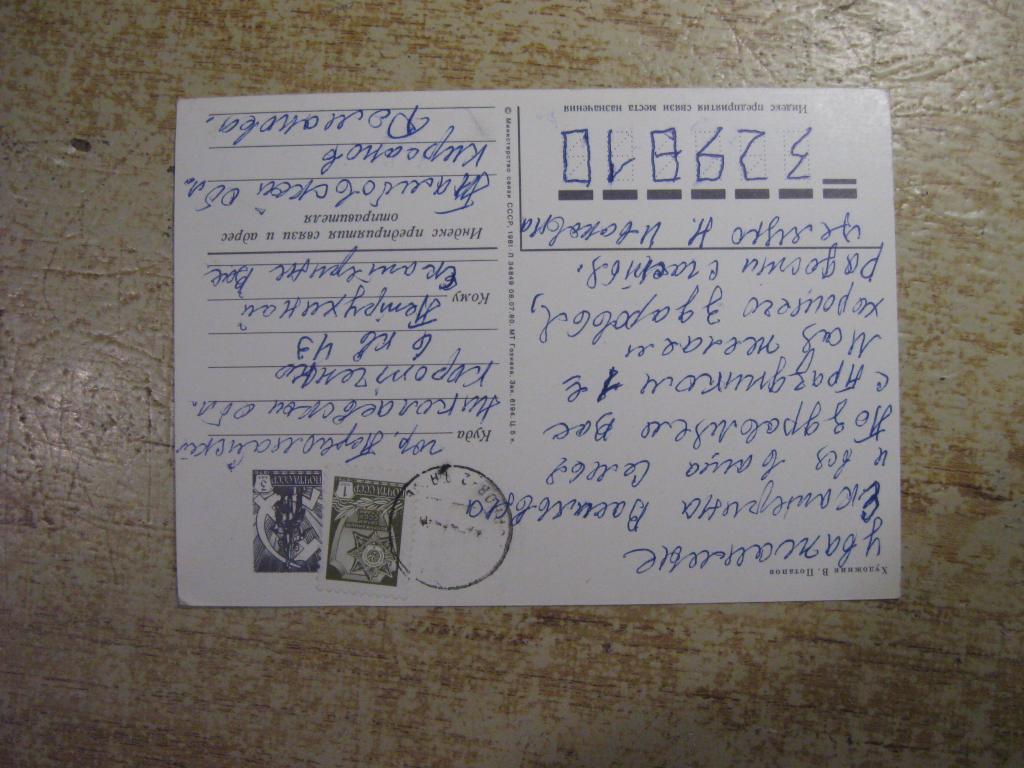 Художник В. Потапов
Уважаемые
Екатерина Васильевна
и вся Ваша Семья
Поздравляю Вас
с праздником 1 е
Мая желаем
хорошего здоровья,
радости счастья.
целую Н. Ивановна
ПОЧТА СССР
1
ПОЧТА СССР
3
Куда
гор. Первомайск
Николаевской обл.
Коротченко
6 кв 43
Кому
Петрухиной
Екатерине Вас
Индекс предприятия связи и адрес
отправителя
Тамбовской обл.
Кирсанов
Романова.
329810
Индекс предприятия связи места назначения
© Министерство связи СССР, 1981. Л 34849 08.07.80. МТ Гознака. Зак. 6194. Ц. 5 к.